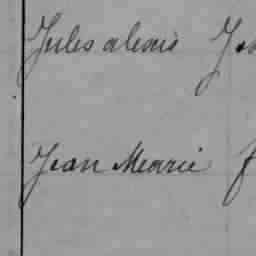 Jules alexis
Jean Marie